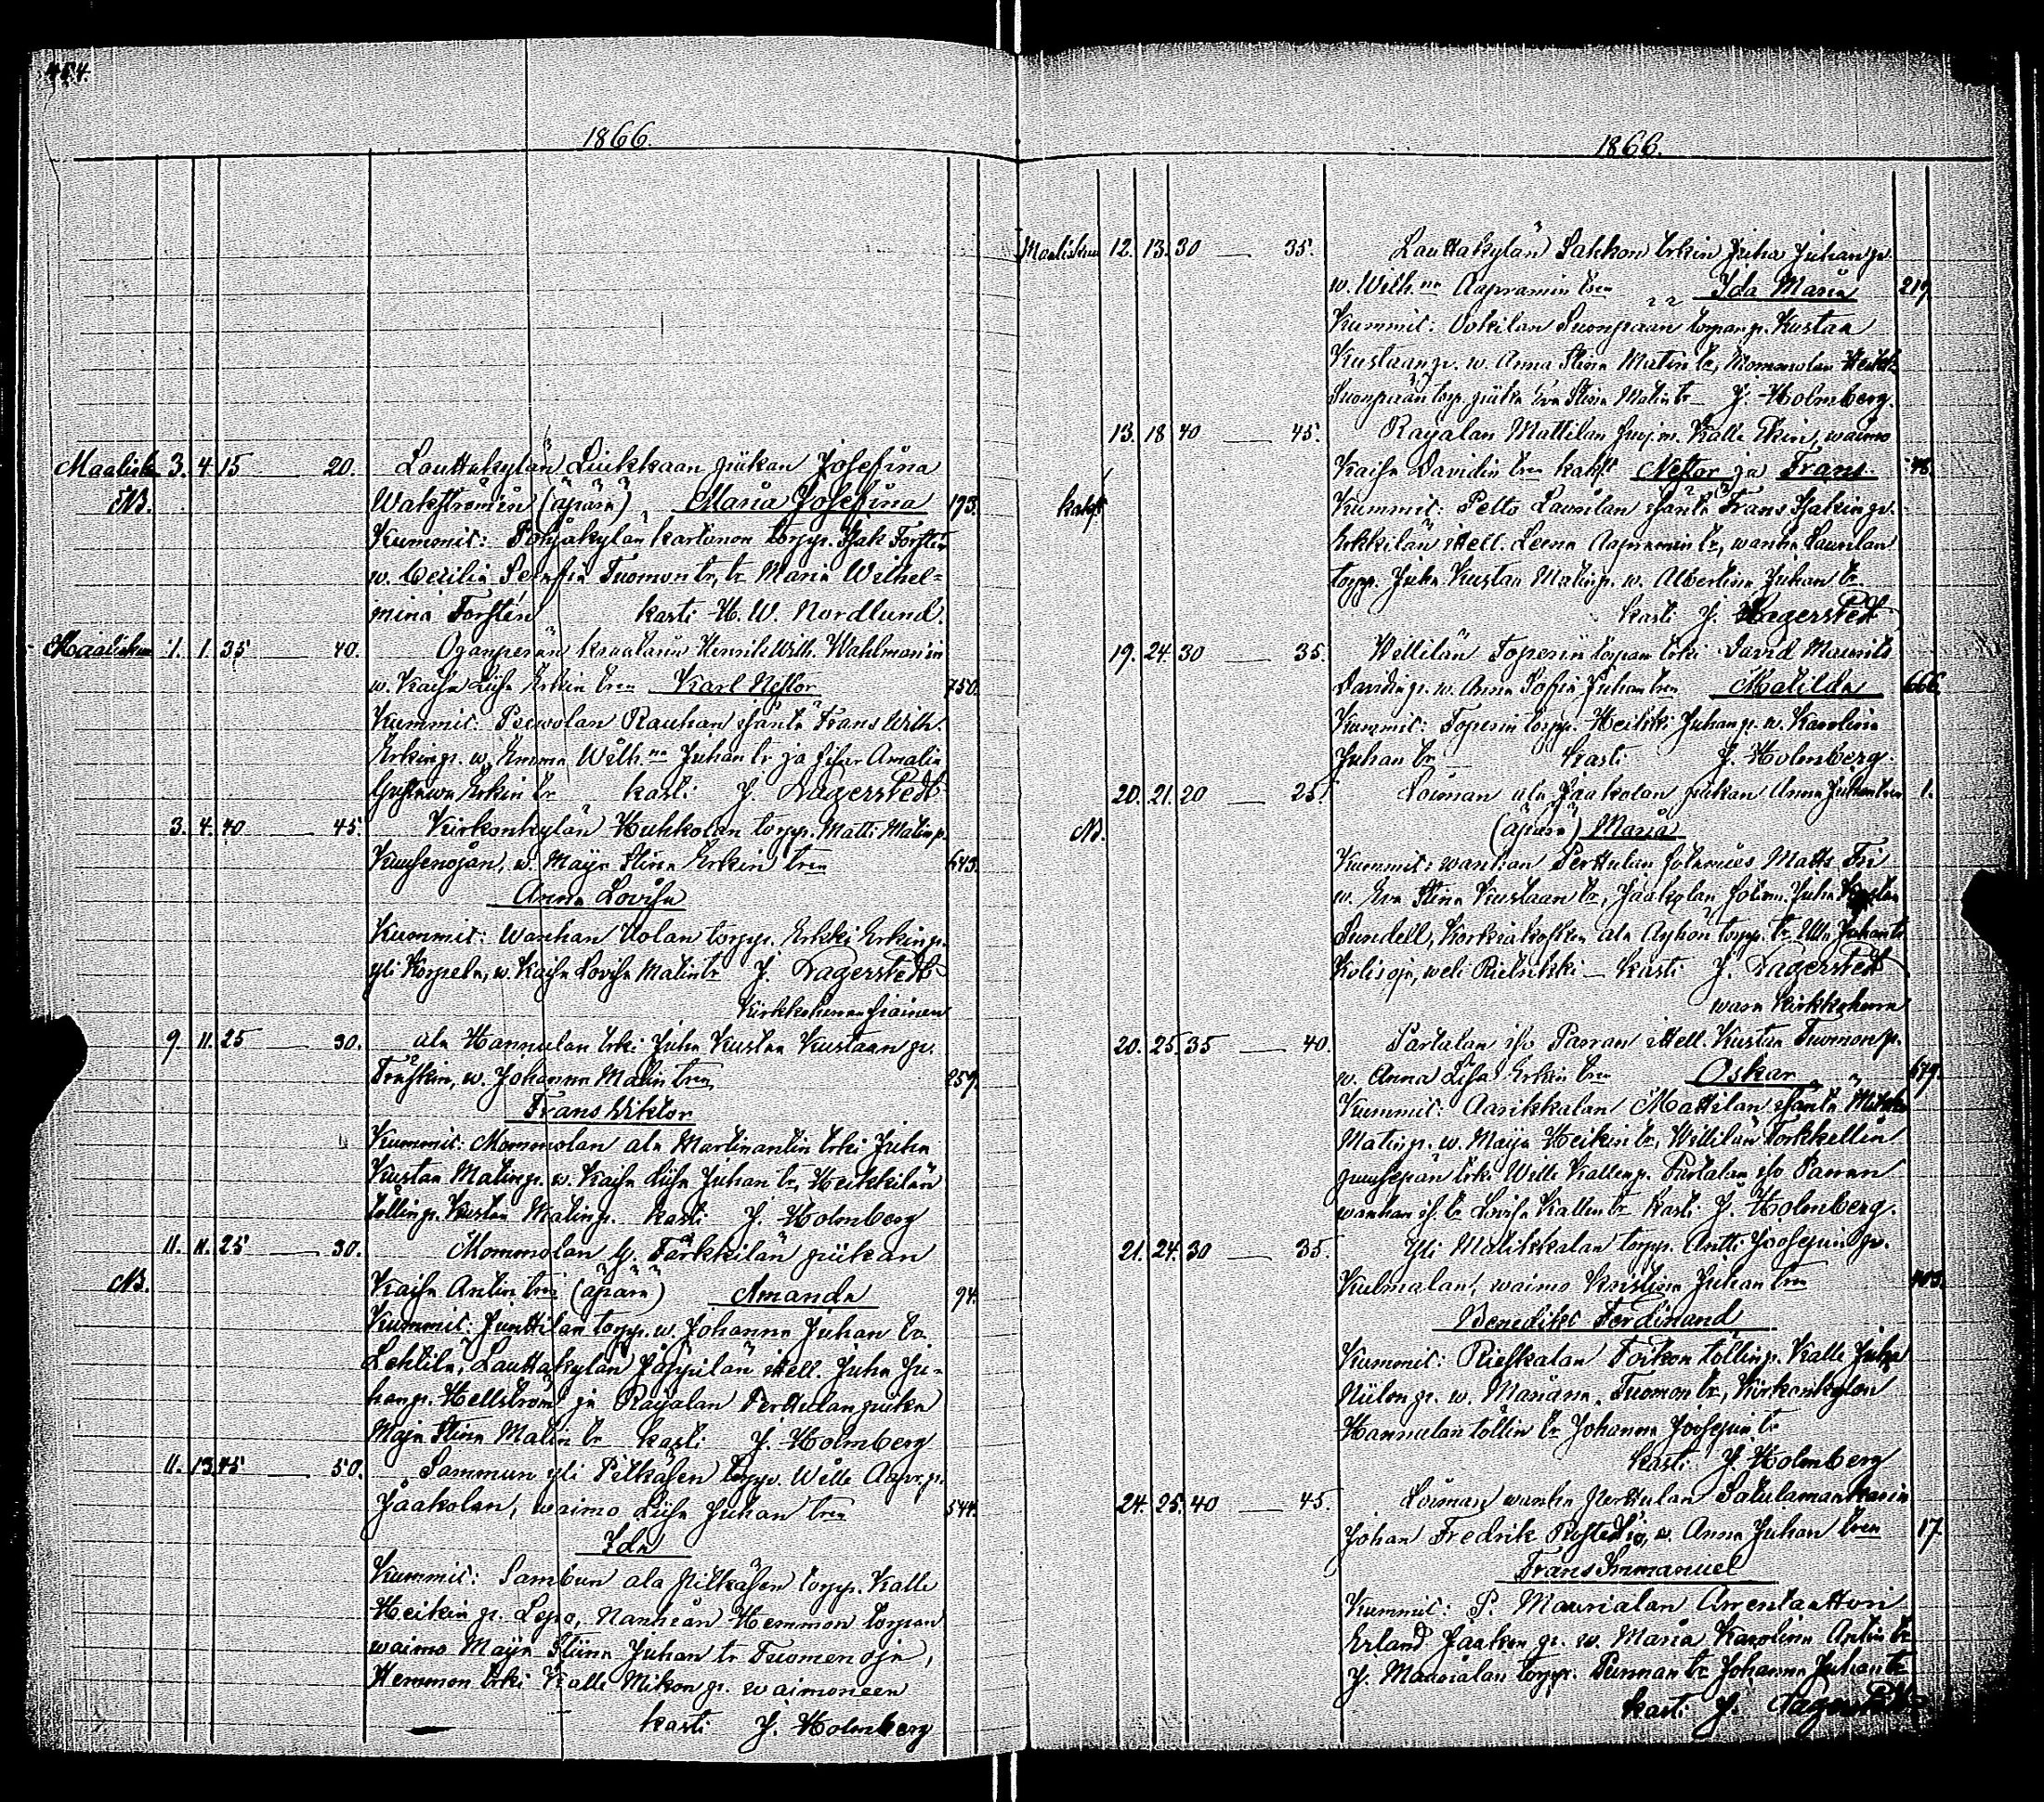 454.
1866.
Maalisk. 3. 4. 15 — 20. Lauttakylän Liukkaan piikan Josefina
NB. Wakströmin (äpärä) Maria Josefina 193.
Kummit: Pohjakylän kartanon torpp. Isak Forstén
w. Cecilia Serafia Tuomon tr, tr Maria Wilhel-
mina Forstén kasti H. W. Nordlund.
Maaliskuu 1. 1. 35 — 40. kraatarin Henrik Wilh. Wahlmanin
w. Kaisa Liisa Erkin tren Karl Nestor 750.
Kummit: Rauhan isäntä Frans Wilh.
Erkin p. w. Emma Wilh.na Juhan tr ja Amalia
Gustawa Erkin tr kasti J. Lagerstedt
3. 4. 40 — 45. Kirkonkylän Huhkolan torpp. Matti Matinp.
Kuusenojan, w. Maija Stiina Erkin tren 643.
Anna Lovisa
Kummit: Wanhan Uolan torpp. Erkki Erkin p.
yli Korpela, w. Kaisa Lovisa Matin tr J. Lagerstedt
Kirkkoherran sijainen
9. 11. 25 — 30. ala Hannulan trki Juha Kustaa Kustaan p.
w. Johanna Matin tren 259.
Frans Wiktor
Kummit: Mommolan ala Martinantin trki Juha
Kustaa Matin p. w. Kaisa Liisa Juhan tr, Heikkilän
töllin p. Kustaa Matin p. kasti J. Holmberg
11. 11. 25 — 30. Mommolan Y. Tärkkilän piikan
NB. Kaisa Antin tren (äpärä) Amanda 94.
Kummit: Junttilan torpp. w. Johanna Juhan tr
Lehtilä, Lauttakylän Jäppilän itsell. Juha Ju-
han p. Hellström ja Raijalan Perttulan piika
Maja Stina Matin tr kasti J. Holmberg
11. 13. 45 — 50. Sammun yli Pilkäsen torpp. Wille Aapr. p.
Jaakolan, waimo Liisa Juhan tren 544.
Ida
Kummit: Sammun ala Pilkäsen torpp. Kalle
Heikin p. Lepo, Nanhian Hemmon torpan
waimo Maija Stiina Juhan tr Tuomenoja,
Hemmon trki Kalle Mikon p. waimoneen
kasti J. Holmberg
1866.
Maaliskuu 12. 13. 30 — 35. Lauttakylän Sakkon trkin Juha Juhan p.
w. Wilh.na Aapramin tren Ida Maria 219.
Kummit: Suonpään torpan p. Kustaa
Kustaan p. w. Anna Stina Matin tr, Mommolan
Suonpään torp. piika Eva Stina Matin tr J. Holmberg.
13. 18. 40 — 45. Raijalan Mattilan Kalle Ekin, waimo
Kaisa Davidin tren kakst Nestor ja Frans 48.
kakst Kummit: Pelto Laurilan isäntä Frans Isakin p.
Erkkilän itsell. Leena Aapramin tr, wanha Laurilan
torpp. Juha Kustaa Matin p. w. Albertina Juhan tr.
kasti J. Lagerstedt
19. 24. 30 — 35. Wellilän Toperin torpan trki David Maurits
Davidin p. w. Anna Sofia Juhan tren Matilda 666.
Kummit: Toperin torpp. Heikki Juhan p. w. Karolina
Juhan tr kasti J. Holmberg.
20. 21. 20 — 25. Loiman ala Jaakolan piikan Anna Juhan tren 1.
NB. (äpärä) Maria
Kummit: wanhan Perttulan sotamies Matts Fri
w. Eva Stina Kustaan tr, Jaakolan sotam. Juha Kustaa
Sundell, Korkiakosken ala Ayhön torpp. tr Ulla Juhan tr
Kolisoja, weli J. Lagerstedt
wara Kirkkoherra
20. 25. 35 — 40. Partalan iso Parran itsell. Kustaa Tuomon p.
w. Anna Liisa Erkin tren Oskar 679.
Kummit: Aarikkalan Mattilan isäntä
Matin p. w. Maija Heikin tr, Willilän Torkkellin
puusepän trki Wille Kallen p. Partalan iso Parran
wanhan is. tr Lovisa Kallen tr kasti J. Holmberg.
21. 24. 30 — 35. Yli Malikkalan torpp. Antti Joosepin p.
Kulmalan, waimo Kristiina Juhan tren 403.
Benedikt Ferdinand
Kummit: Rieskalan Torkon töllin p. Kalle Juha
Niilon p. w. Mariana Tuomon tr, Kirkonkylän
Hannulan töllin tr Johanna Joosepin tr
kasti J. Holmberg
24. 25. 40 — 45. Loiman wanha Perttulan Satulamaakarin
Johan Fredrik w. Anna Juhan tren 17.
Frans Immanuel
Kummit: P. Maurialan Arrentaattori
Erland Jaakon p. w. Maria Karolina Antin tr
Y. Maurialan torpp. Punnan tr Johanna Juhan tr
kasti J. Lagerstedt